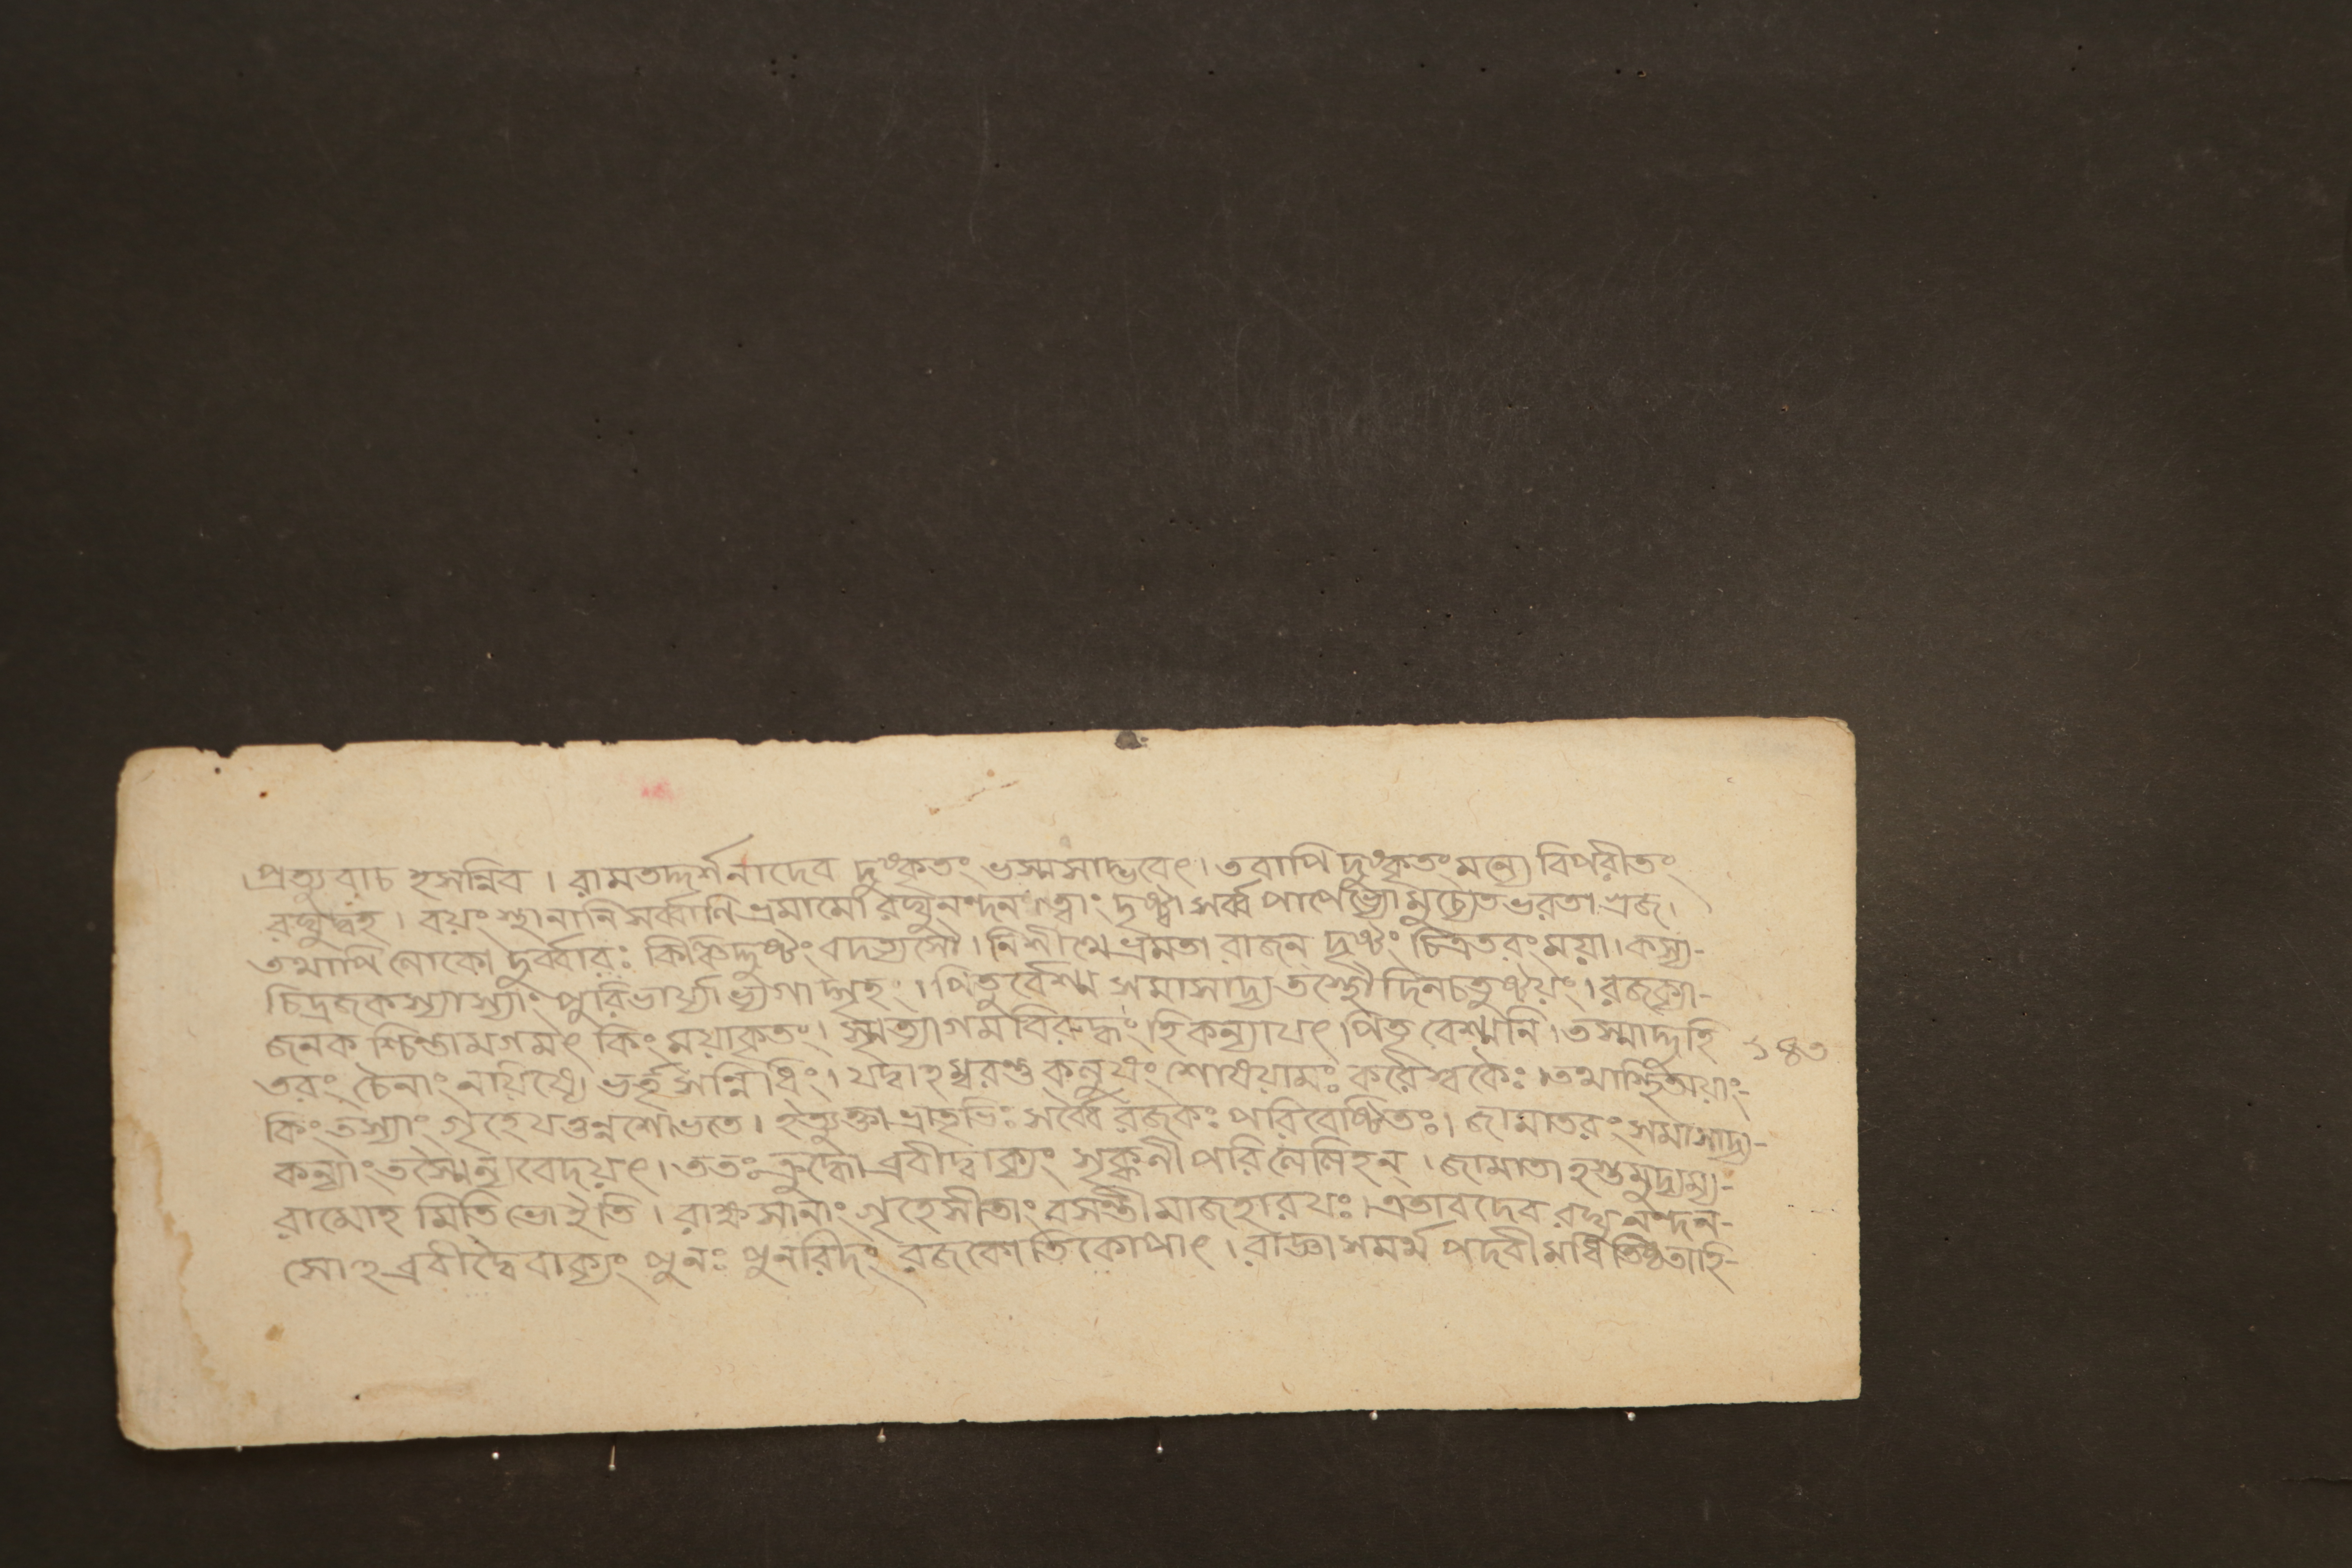 প্রত্যুবাচ হসন্নিব । রামতদ্দর্শনাদেব দুষ্কৃতং ভস্মসাদ্ভবেৎ । তবাপি দুষ্কৃতং মন্যে বিপরীতং
রঘুদ্বহ । বয়ং স্থানানি সর্ব্বাণি ভ্রমামো রঘুনন্দন । ত্বাং দৃষ্ট্বা সর্ব্বপাপেভ্যো মুচ্যেত ভরতাগ্রজ ।
তথাপি লোকো দুর্ব্বারঃ কিঞ্চিদ্দুষ্টং বদত্যসৌ । নিশীথে ভ্রমতা রাজন্ দৃষ্টং চিত্রতরং ময়া । কস্য-
চিদ্রজকস্যাস্যাং পুরি ভার্য্যাভ্যগাদ্গৃহং । পিতুর্বেশ্ম সমাসাদ্য তস্থৌ দিনচতুষ্টয়ং । রজক্যা-
জনকশ্চিন্তামগমৎ কিং ময়া কৃতং । স্মৃত্যাগমবিরুদ্ধং হি কন্যা যৎ পিতৃবেশ্মনি । তস্মাদ্দহি
তরং চৈনাং নায়য়িষ্যে ভর্তৃসন্নিধিং । যদ্বা হম্বরন্তু কলুষং শোধয়ামঃ করৈঃ স্বকৈঃ । তথাস্থিতায়াং-
কিং তস্যাং গৃহে যত্তন্নশোভতে । ইত্যুক্তা ভ্রাতৃভিঃ সর্ব্বৈ রজকঃ পরিবেষ্টিতঃ । জামাতরং সমাসাদ্য-
কন্যাং তস্মৈ ন্যবেদয়ৎ । ততঃ ক্রুদ্ধো ব্রবীদ্বাক্যং সৃক্কণী পরিলেলিহন্ । জামাতা হস্তমুদ্যম্য-
রামোহমিতি ভো ইতি । রাক্ষসানাং গৃহে সীতাং বসন্তীমাজহার যঃ । এতাবদেব রঘুনন্দন-
সোহব্রবীদ্বৈ বাক্যং পুনঃ পুনরিদং রজকোতিকোপাৎ । রাজ্ঞা সমর্থ পদবীমধিতিষ্ঠতাহি-
১৪৩